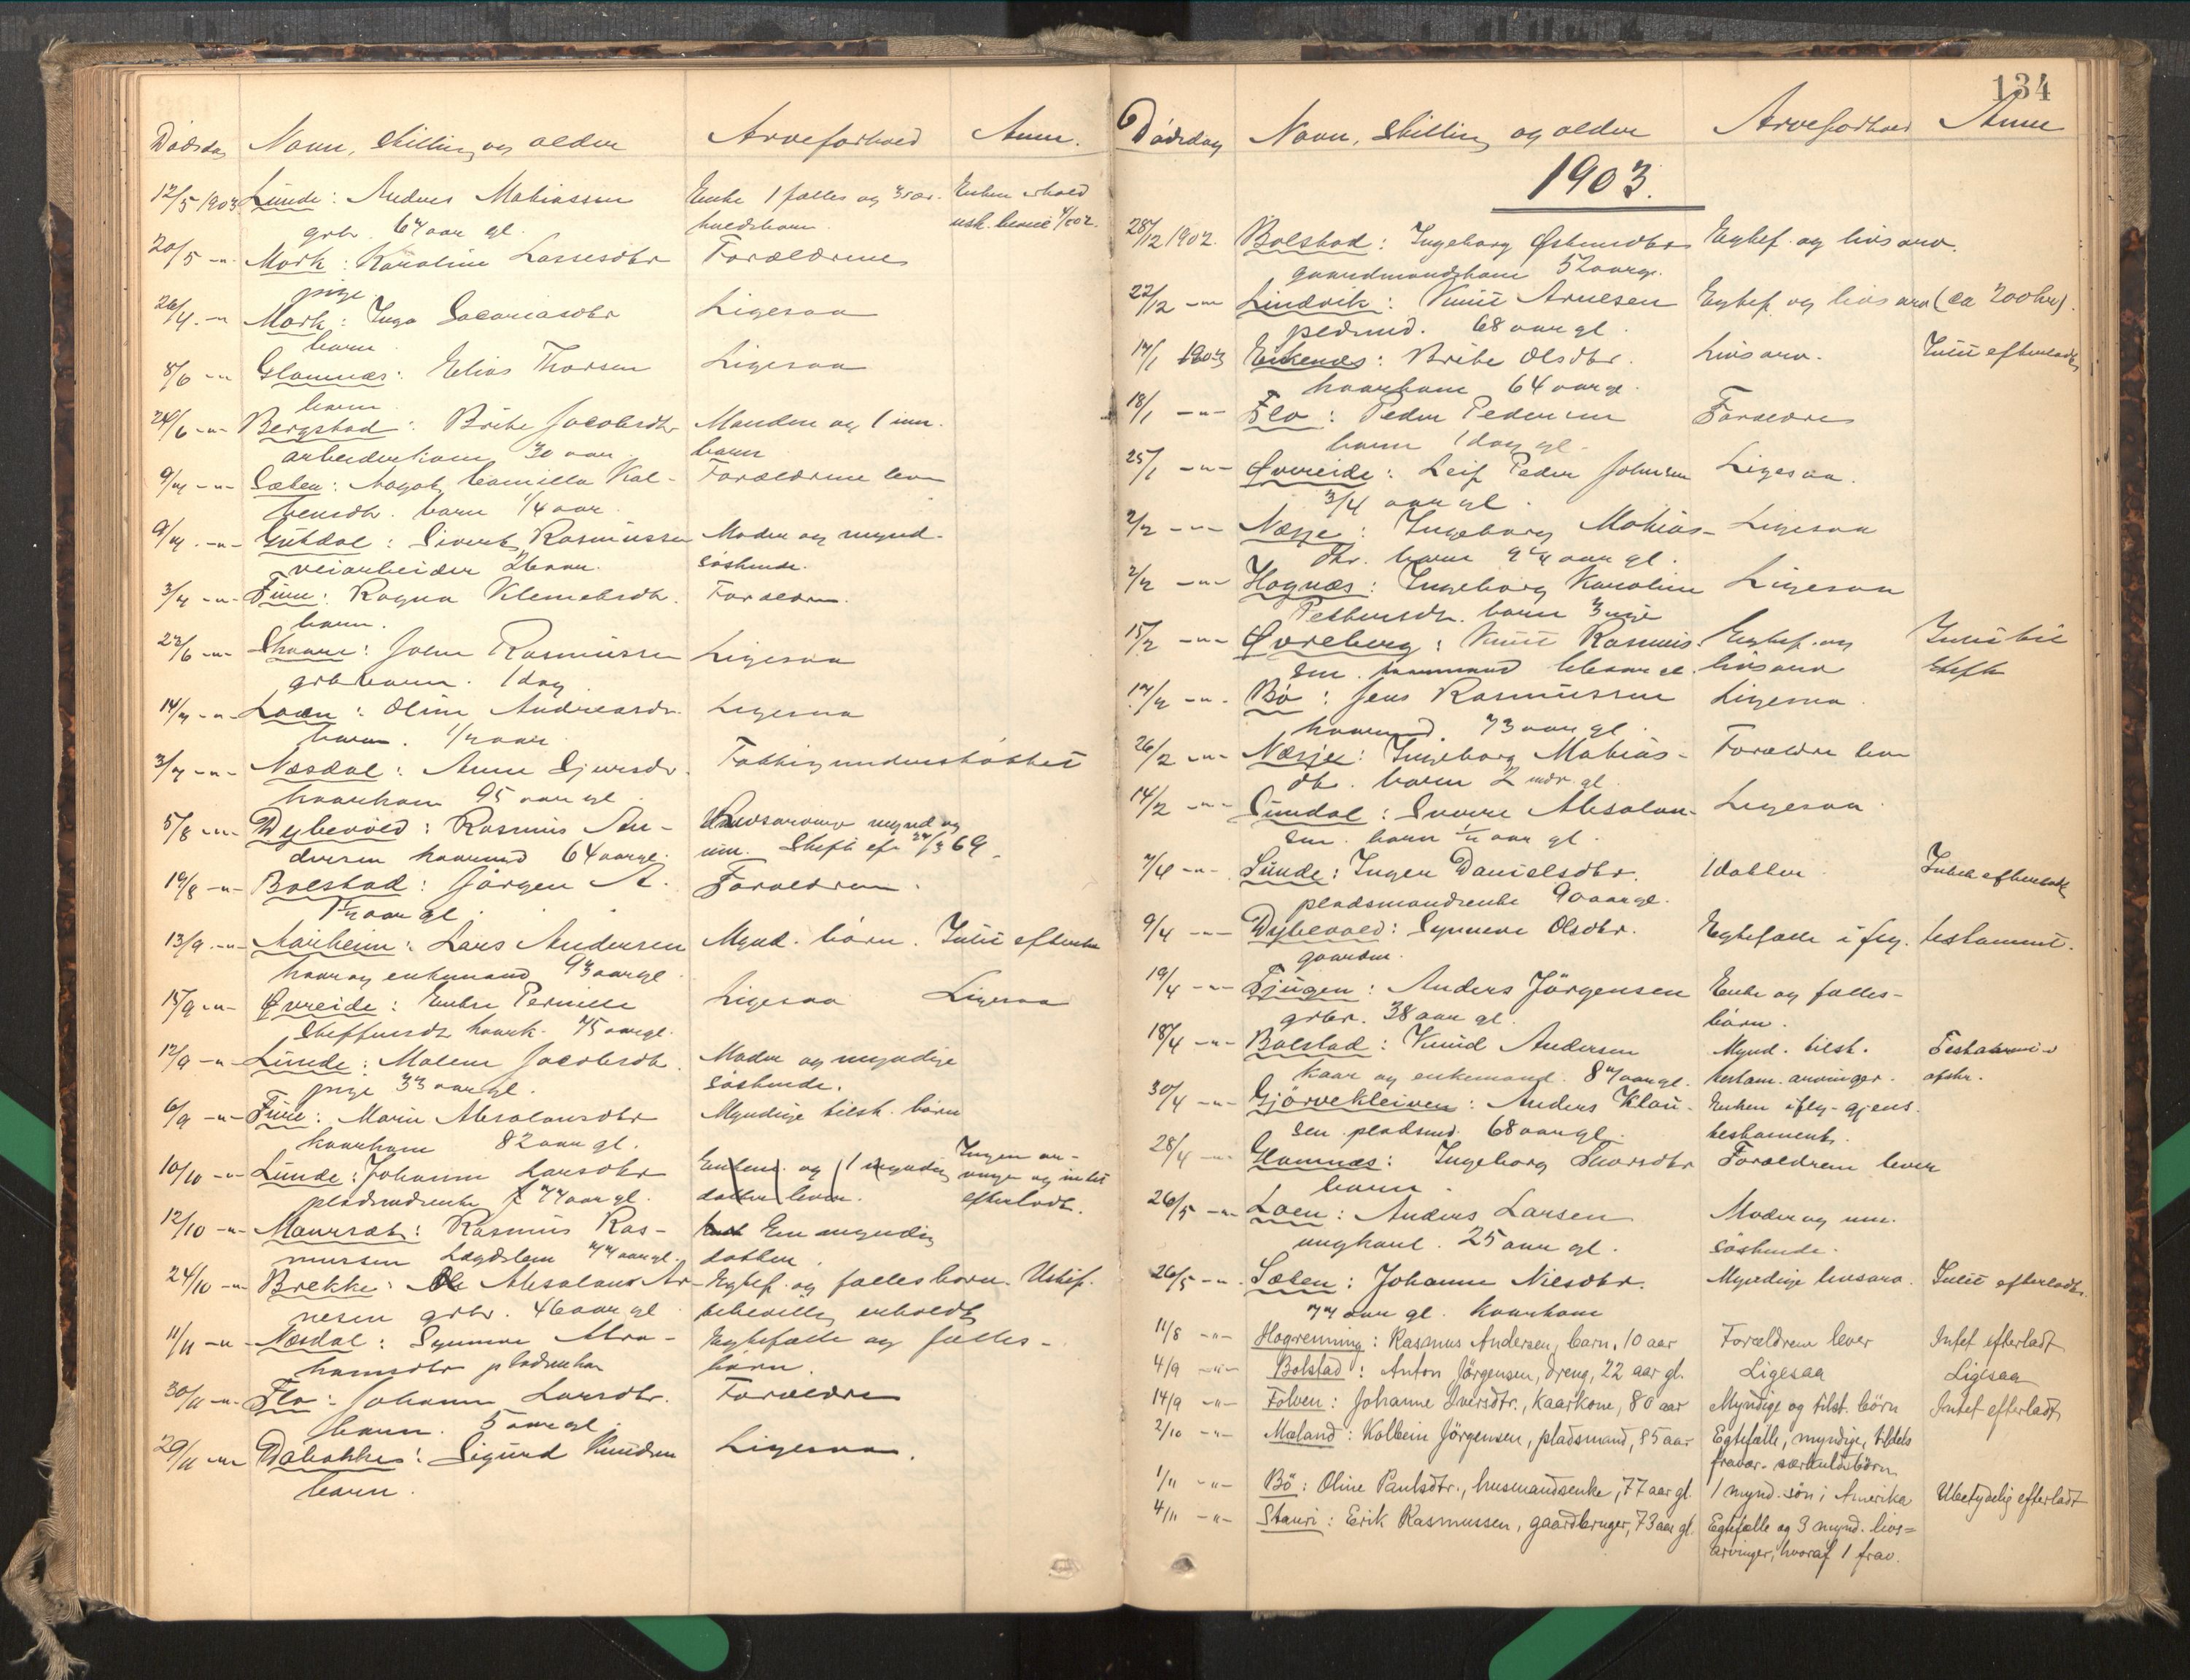 Dødsdag Navn, stilling og alder Arveforhold Anm.
12/5 1903 Lunde: Anders Mathiassen Enke 1 fælles og 3 sær- Enken erhold
grbr. 67 aar gl. kuldsbarn. usk. bevil
20/5 -"- Mork: Karoline Lassesdtr Forældrene
pige
26/4 -"- Mork: Inga Sacariasdtr Ligesaa
barn
8/6 -"- Glomnæs: Elias Thorsen Ligesaa
barn
24/6 -"- Bergstad: Brite Jacobsdtr Manden og 1 um.
arbeiderkone 30 aar barn
9/7 -"- Sæten: Camilla Kol- Forældrene lev
bensdtr. barn 1/4 aar
9/7 -"- Guddal: Sivert Rasmussen Moder og mynd.
veiarbeider 26 aar. søskende.
3/7 -"- Furu: Ragna Klemetsdtr. Forældre.
barn.
23/6 -"- Skaare: John Rasmussen Ligesaa
grbr barn. 1 dag
14/7 -"- Loen: Oline Andreasdr. Ligesaa
barn. 1/2 aar
3/7 -"- Næsdal: Anne Sjursdr. Fattigunderstøttet
kaarkone 95 aar gl.
5/8 -"- Dybevold: Rasmus An- Livsarving mynd og
dersen kaarmd 64 aar gl. um. Skifte efr 69
19/8 -"- Bolstad: Jørgen A. Forældrene.
1 1/2 aar gl.
13/9 -"- Aarheim: Lars Andersen Mynd. børn. Intet efterladt
kaar og enkemand 93 aar gl.
15/9 -"- Øvreide: Enke Pernille Ligesaa Ligesaa
Steffensdt kaark. 75 aar gl.
12/9 -"- Lunde: Malene Jacobsdtr. Moder og myndige
pige 33 aar gl. søskende.
6/9 -"- Furu: Marie Absalonsdtr Myndige tilst. børn
kaarkone 82 aar gl.
10/10 -"- Lunde: Johanne Larsdtr Enken og 1 myndig Ingen ar-
pladsmdsenke 77 aar gl. datter lever. vinger og intet
efterladt.
12/10 -"- Maursæt: Rasmus Ras- En myndig
mussen Lægdslem 77 aar gl. datter.
24/10 -"- Brekke: Absalon Ar- Egtef. og fælles børn. Uskif.
nesen grbr. 46 aar gl. tebevilling erholdt
11/11 -"- Næsdal: Synneve Abra- Egtefælle og fælles-
hamsdtr pladsenke børn.
30/11 -"- Flo: Johanne Larsdtr. Forældre
barn. 5 aar gl.
29/11 -"- Sigurd Knudsen Ligesaa.
barn.
134
Dødsdag Navn, stilling og alder Arveforhold Anm
1903.
28/12 1902. Bolstad: Ingeborg Østensdtr Egtef. og livsarv.
gaardmandskone 52 aar gl.
22/12 -"- Lindvik: Knut Arnesen Egtef. og livsarv (ca 200 kr).
pladsmd. 68 aar gl.
17/1 1903 Eikenæs: Brite Olsdtr. Livsarv. Intet efterladt
kaarkone 64 aar gl.
18/1 -"- Flo: Peder Pedersen Forældre
barn 1 dag gl.
25/1 -"- Øvreide: Leif Peder Johnsen Ligesaa.
3/4 aar gl.
2/2 -"- Næsje: Ingeborg Mathias- Ligesaa
dtr. barn aar gl.
2/2 -"- Hognæs: Ingeborg Karoline Ligesaa
barn 3 uger
15/2 -"- Øvreberg: Knut Rasmus- Egtef. og Intet til
sen. kaarmand aar gl. livsarv Skifte
17/2 -"- Bø: Jens Rasmussen Ligesaa.
kaarmd. 73 aar gl.
26/2 -"- Næsje: Ingeborg Mathias- Forældre lev
dtr. barn 2 mdr. gl.
14/2 -"- Sundal: Sverre Absalon- Ligesaa
sen. barn 1/2 aar gl.
7/4 -"- Lunde: Inger Danielsdtr. 1 datter Intet efterladt
pladsmandsenke 90 aar gl.
9/4 -"- Dybevold: Synneve Olsdtr. Egtefælle i flg. testament.
gaardm.
19/4 -"- Tjugen: Anders Jørgensen Enke og fælles-
grbr. 38 aar gl. børn.
18/4 -"- Bolstad: Knud Andersen Mynd. tilst.
kaar og enkemand. 87 aar gl. testam. arvinger. afskr.
30/4 -"- Gjørvekleiven: Anders Klau- Enken iflg. gjens.
sen pladsmd. 68 aar gl. testament.
28/4 -"- Glomnæs: Ingeborg Thorsdtr Forældrene lever
barn
26/5 -"- Loen: Anders Larsen Moder og um.
ungkarl. 25 aar gl. søskende.
26/5 -"- Sæten: Johanne Nilsdtr. Myndige livsarv. Intet efterladt.
77 aar gl. kaarkone
11/8 -"- Hogrenning: Rasmus Andersen, barn, 10 aar Forældrene lever Intet efterladt
4/9 -"- Bolstad: Anton Jörgensen, dreng, 22 aar gl. Ligesaa Ligesaa
14/9 -"- Folven: Johanne Iversdtr., Kaarkone, 80 aar Myndige og tilst. börn Intet efterladt
2/10 -"- Mæland: Kolbein Jörgensen, pladsmand, 85 aar Egtefælle, myndige, tildels
fravær. særkuldsbörn
1/11 -"- Bö: Oline Paulsdtr., husmandsenke, 77 aar gl. 1 mynd. sön i Amerika Ubetydelig efterladt
4/11 -"- Stauri: Eerik Rasmussen, gaardbruger, 73 aar gl. Egtefælle og 3 mynd. livs=
arvinger, hvoraf 1 frav.